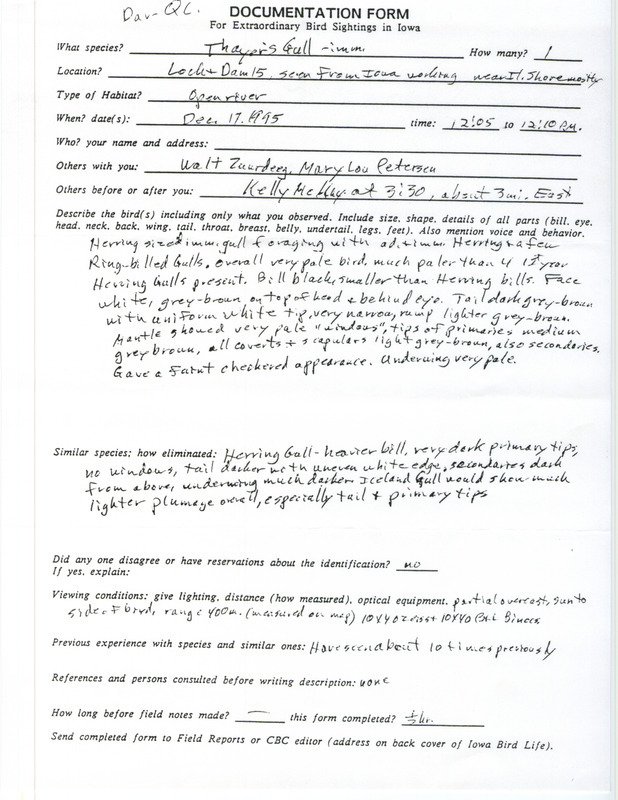 Dav-QC.
DOCUMENTATION FORM
For Extraordinary Bird Sightings in Iowa
What species? Thayer's Gull - imm. How many? 1
Location? Lock & Dam 15, seen from Iowa working near Il. Shore mostly
Type of Habitat? Open river
When? date(s): Dec. 17, 1995 time: 12:05 to 12:10 P.M.
Who? your name and address:
Others with you: Walt Zuurdeeg, Mary Lou Petersen
Others before or after you: Kelly McKay at 3:30, about 3 mi. East
Describe the bird(s) including only what you observed. Include size, shape, details of all parts (bill, eye,
head, neck, back, wing, tail, throat, breast, belly, undertail, legs, feet). Also mention voice and behavior.
Herring sized imm. gull foraging with ad. & imm. Herring & a few
Ring-billed Gulls. overall very pale bird, much paler than 4 1st year
Herring Gulls present. Bill black, smaller than Herring bills. Face
white, grey-brown on top of head & behind eye. Tail dark grey-brown
with uniform white tip, very narrow, rump lighter grey-brown.
Mantle showed very pale "windows", tips of primaries medium
grey brown, all coverts + scapulars light grey-brown, also secondaries.
Gave a faint checkered appearance. Underwing very pale.
Similar species; how eliminated: Herring Gull - heavier bill, very dark primary tips,
no windows, tail darker with uneven white edge, secondaries dark
from above, underwing much darker. Iceland Gull would show much
lighter plumage overall, especially tail + primary tips
Did any one disagree or have reservations about the identification? no
If yes, explain:
Viewing conditions: give lighting, distance (how measured), optical equipment. partial overcast, sun to
side of bird, range 400m. (measured on map) 10x40 10x40 Binocs
Previous experience with species and similar ones: Have seen about 10 times previously
References and persons consulted before writing description: none
How long before field notes made? — this form completed? ½ hr.
Send completed form to Field Reports or CBC editor (address on back cover of Iowa Bird Life).